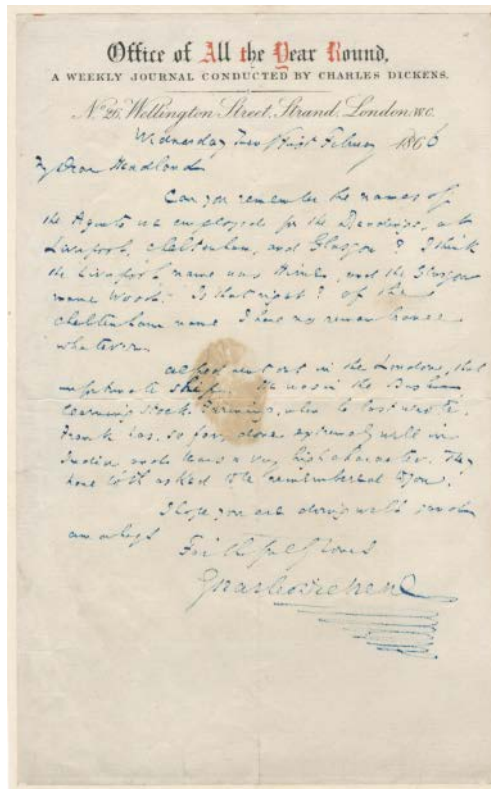 Office of All the Year Round,
A WEEKLY JOURNAL CONDUCTED BY CHARLES DICKENS.
No 26, Wellington Street, Strand, London. W.C.
Wednesday Twenty First February 1866
My Dear Headland
Can you remember the names of
the Agents we employed for the Readings, at
Liverpool, Cheltenham, and Glasgow? I think
the Liverpool name was Hime, and the Glasgow
name Wood. Is that right? Of the
Cheltenham name I have no remembrance
whatever.
Alfred went out in the London, that
unfortunate ship. He was in the Bush
learning Stock Farming, when he last wrote.
Frank has, so far, done extremely well in
India, and bears a very high character. They
have both asked to be remembered to you.
I hope you are doing well
Faithfully Yours
Charles Dickens